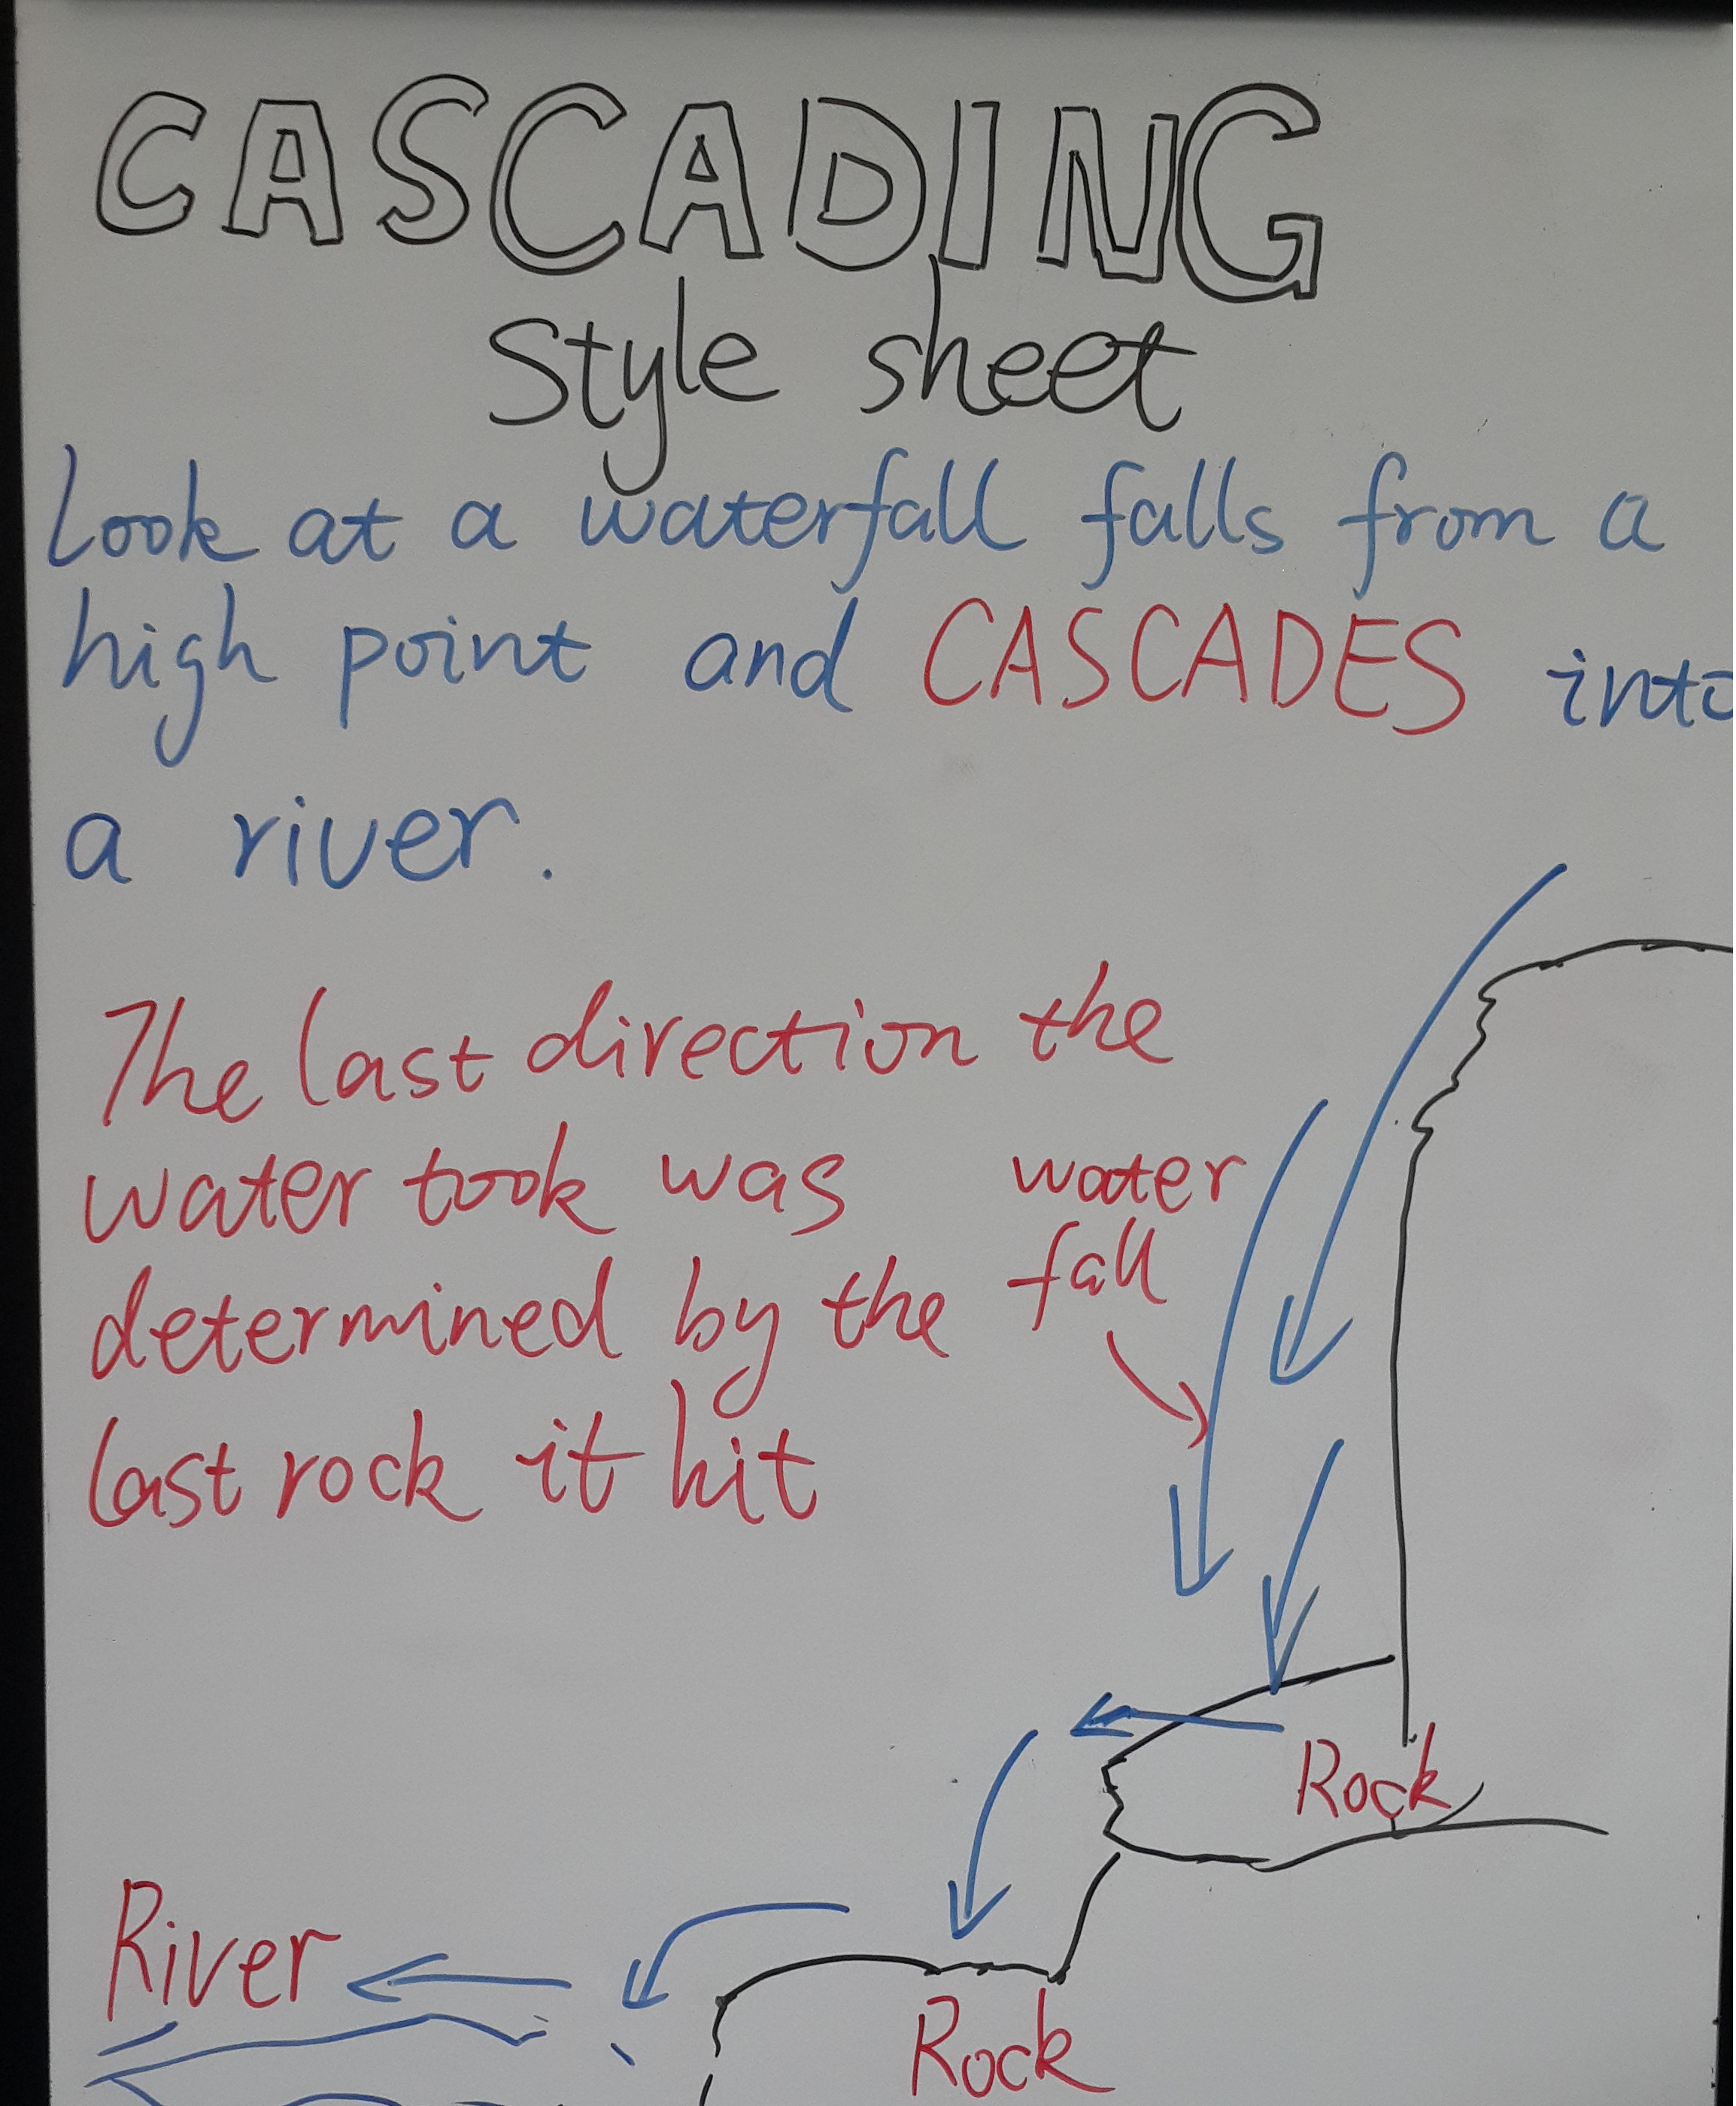 CASCADING
Style sheet
Look at a waterfall falls from a
high point and CASCADES into
a river.
The last direction the
water took was
determined by the
last rock it hit
water
fall
Rock
River
Rock